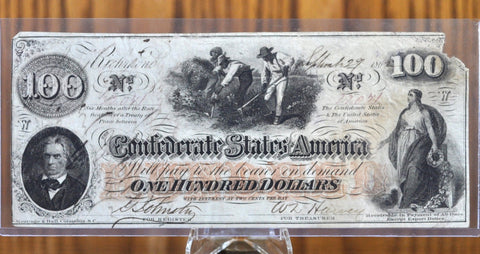 Richmond
Sept 29
100
No
No
100
Six Months after the Rati
fication of a Treaty of
Peace between
The Confederate States
& The United States
of America
Confederate States of America
Will pay to the bearer on demand
ONE HUNDRED DOLLARS
WITH INTEREST AT TWO CENTS PER DAY
FOR REGISTER
FOR TREASURER
Receivable in Payment of All Dues
Except Export Duties.
Keatinge & Ball, Columbia, S.C.